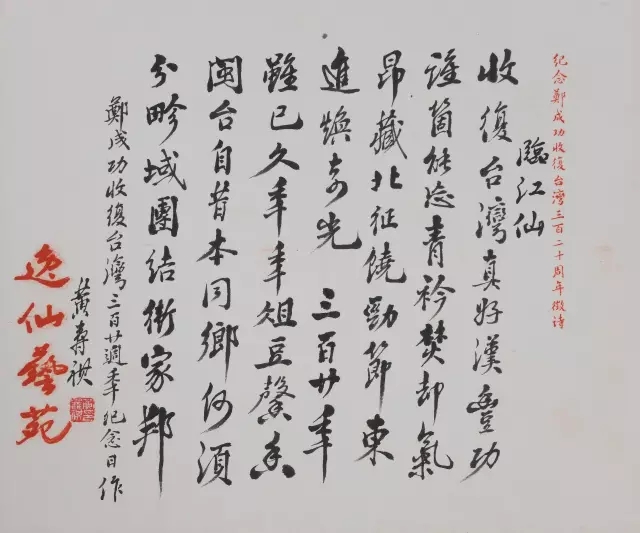 纪念鄭成功收復台灣三百二十周年徵詩
臨江仙
收復台灣真好漢豐功
誰箇能忘青衿焚却氣
昂藏北征饒勁節東
進煥奇光 三百廿年
雖已久年年俎豆馨香
閩台自昔本同鄉何須
分畛域團結衛家邦
鄭成功收復台灣三百廿週年纪念日作
黃壽祺
逸仙藝苑